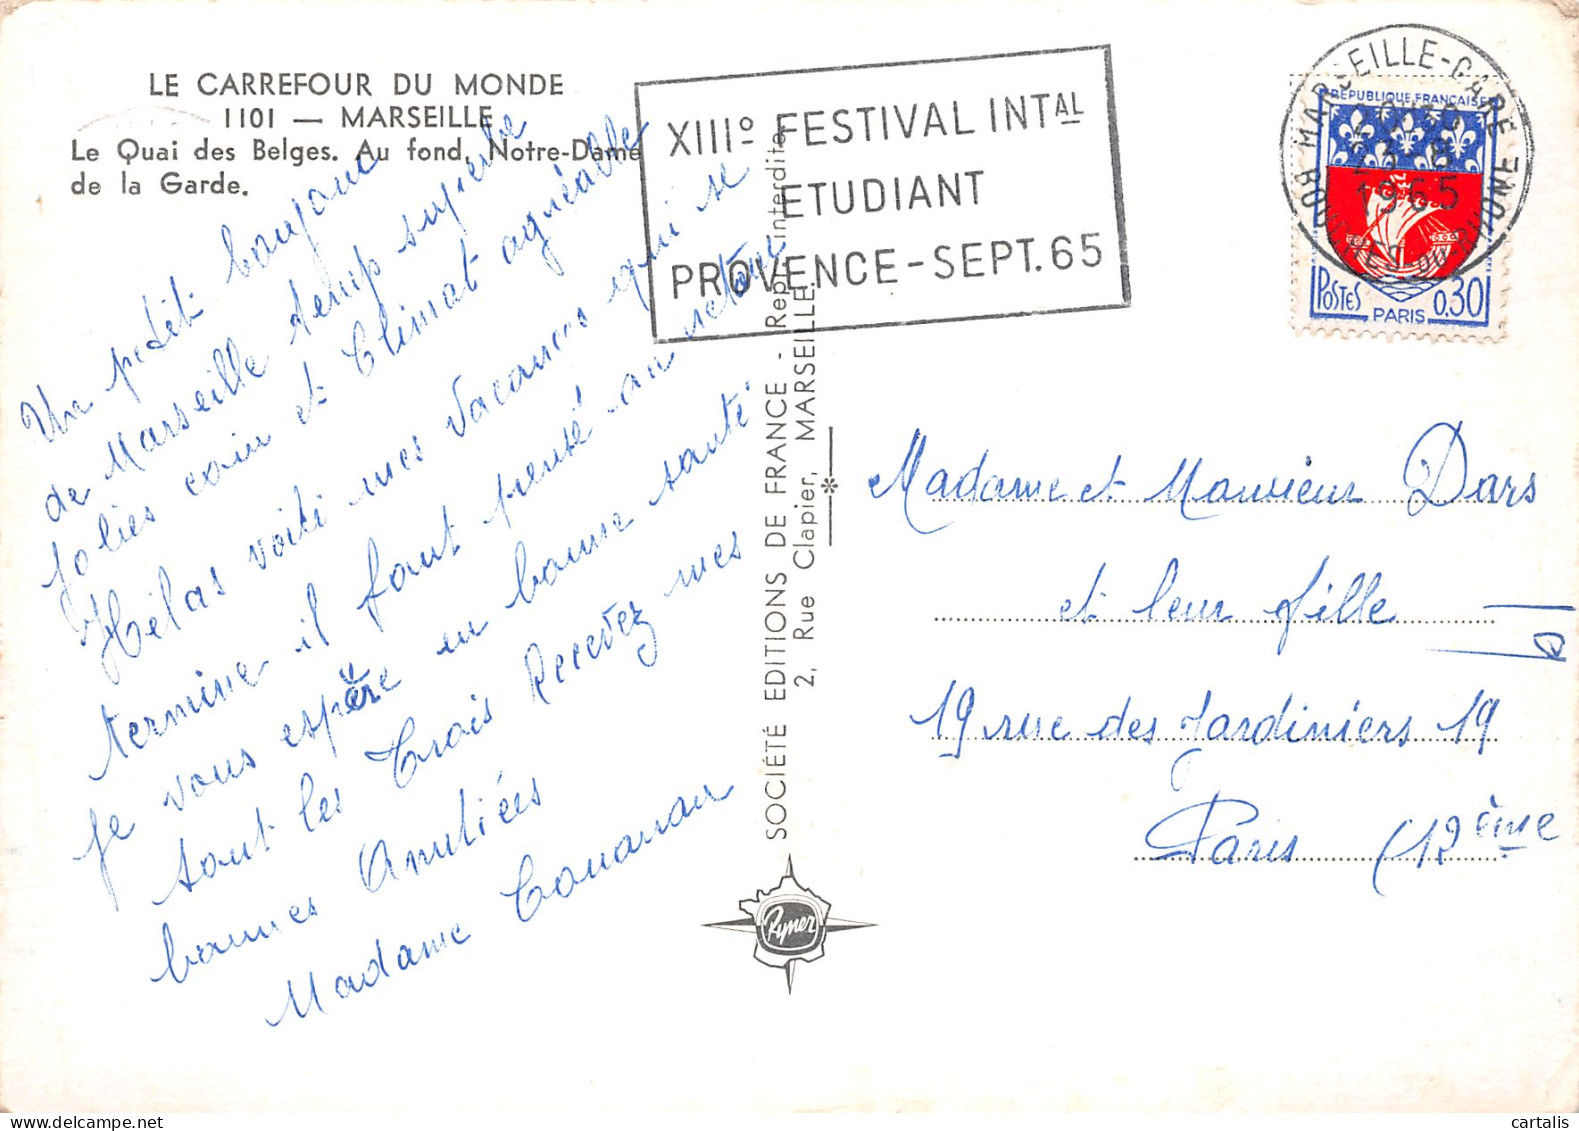 LE CARREFOUR DU MONDE
1101 — MARSEILLE
Le Quai des Belges. Au fond, Notre-Dame
de la Garde.
Un petit bonjour
de Marseille temps superbe
jolies coin et Climat agréable
Hélas voiti mes vacances qui se
termine il faut pensé au retour
je vous espère en bonne santé
tout les trois Recevez mes
bonnes Amitiées
Madame
SOCIÉTÉ EDITIONS DE FRANCE - Repr. interdite
2, Rue Clapier, MARSEILLE.
Rymer
XIIIº FESTIVAL INTAL
ETUDIANT
PROVENCE - SEPT. 65
MARSEILLE-GARE
BOUCHES-DU-RHONE
1965
REPUBLIQUE FRANÇAISE
POSTES PARIS 0,30
Madame et Monsieur Dars
et leur fille
19 rue des Jardiniers 19
Paris (12ème
cartalis
www.delcampe.net